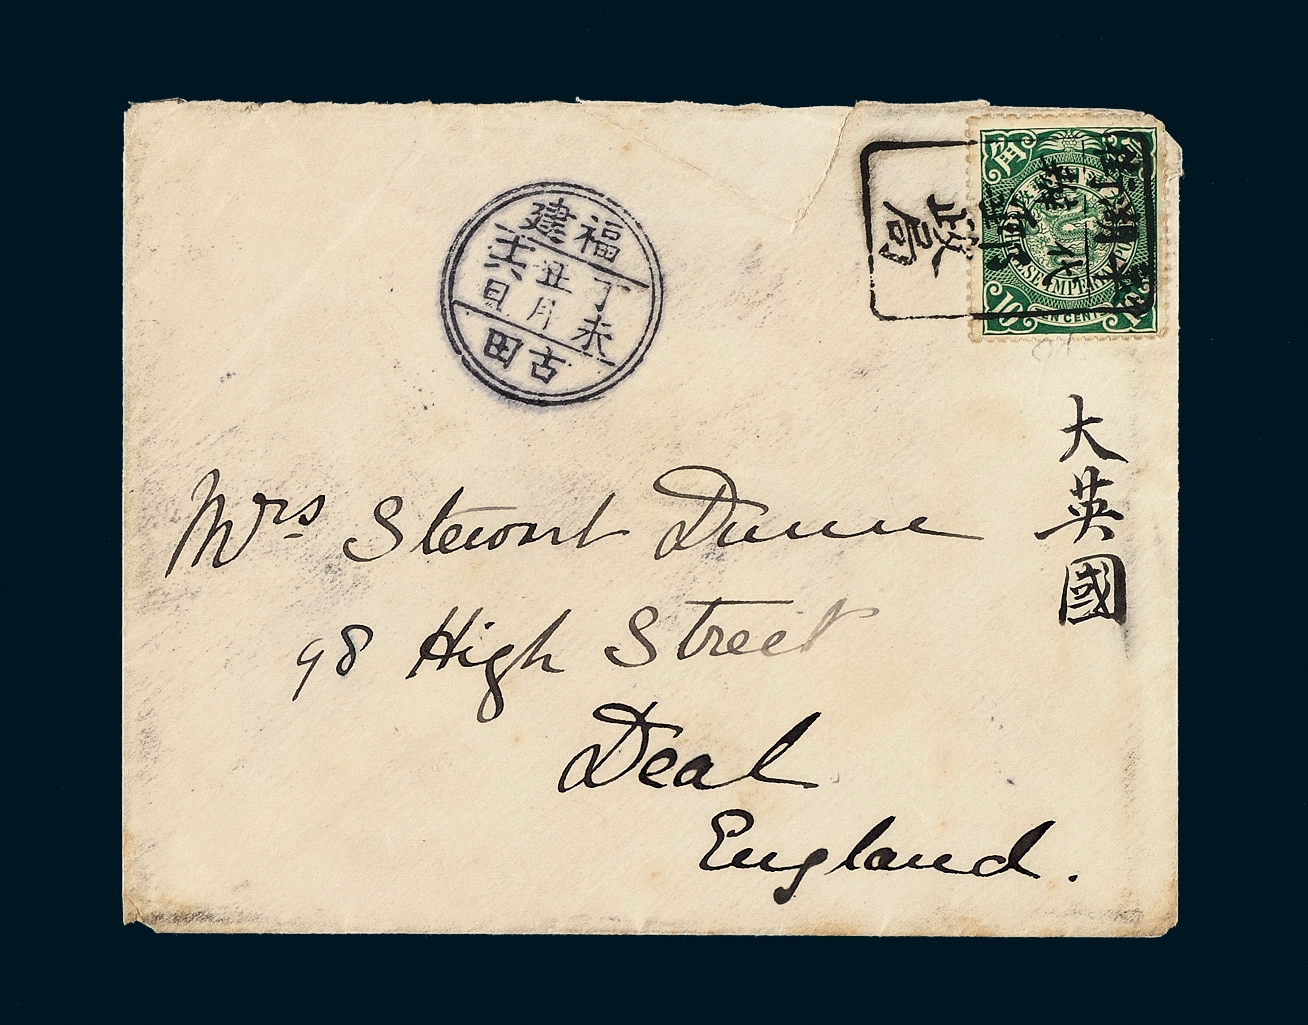 福建
丁未
丑月
十六日
古田
角
政局
代
10
大英國
Mrs Stewart Dunn
98 High Street
Deal
England.